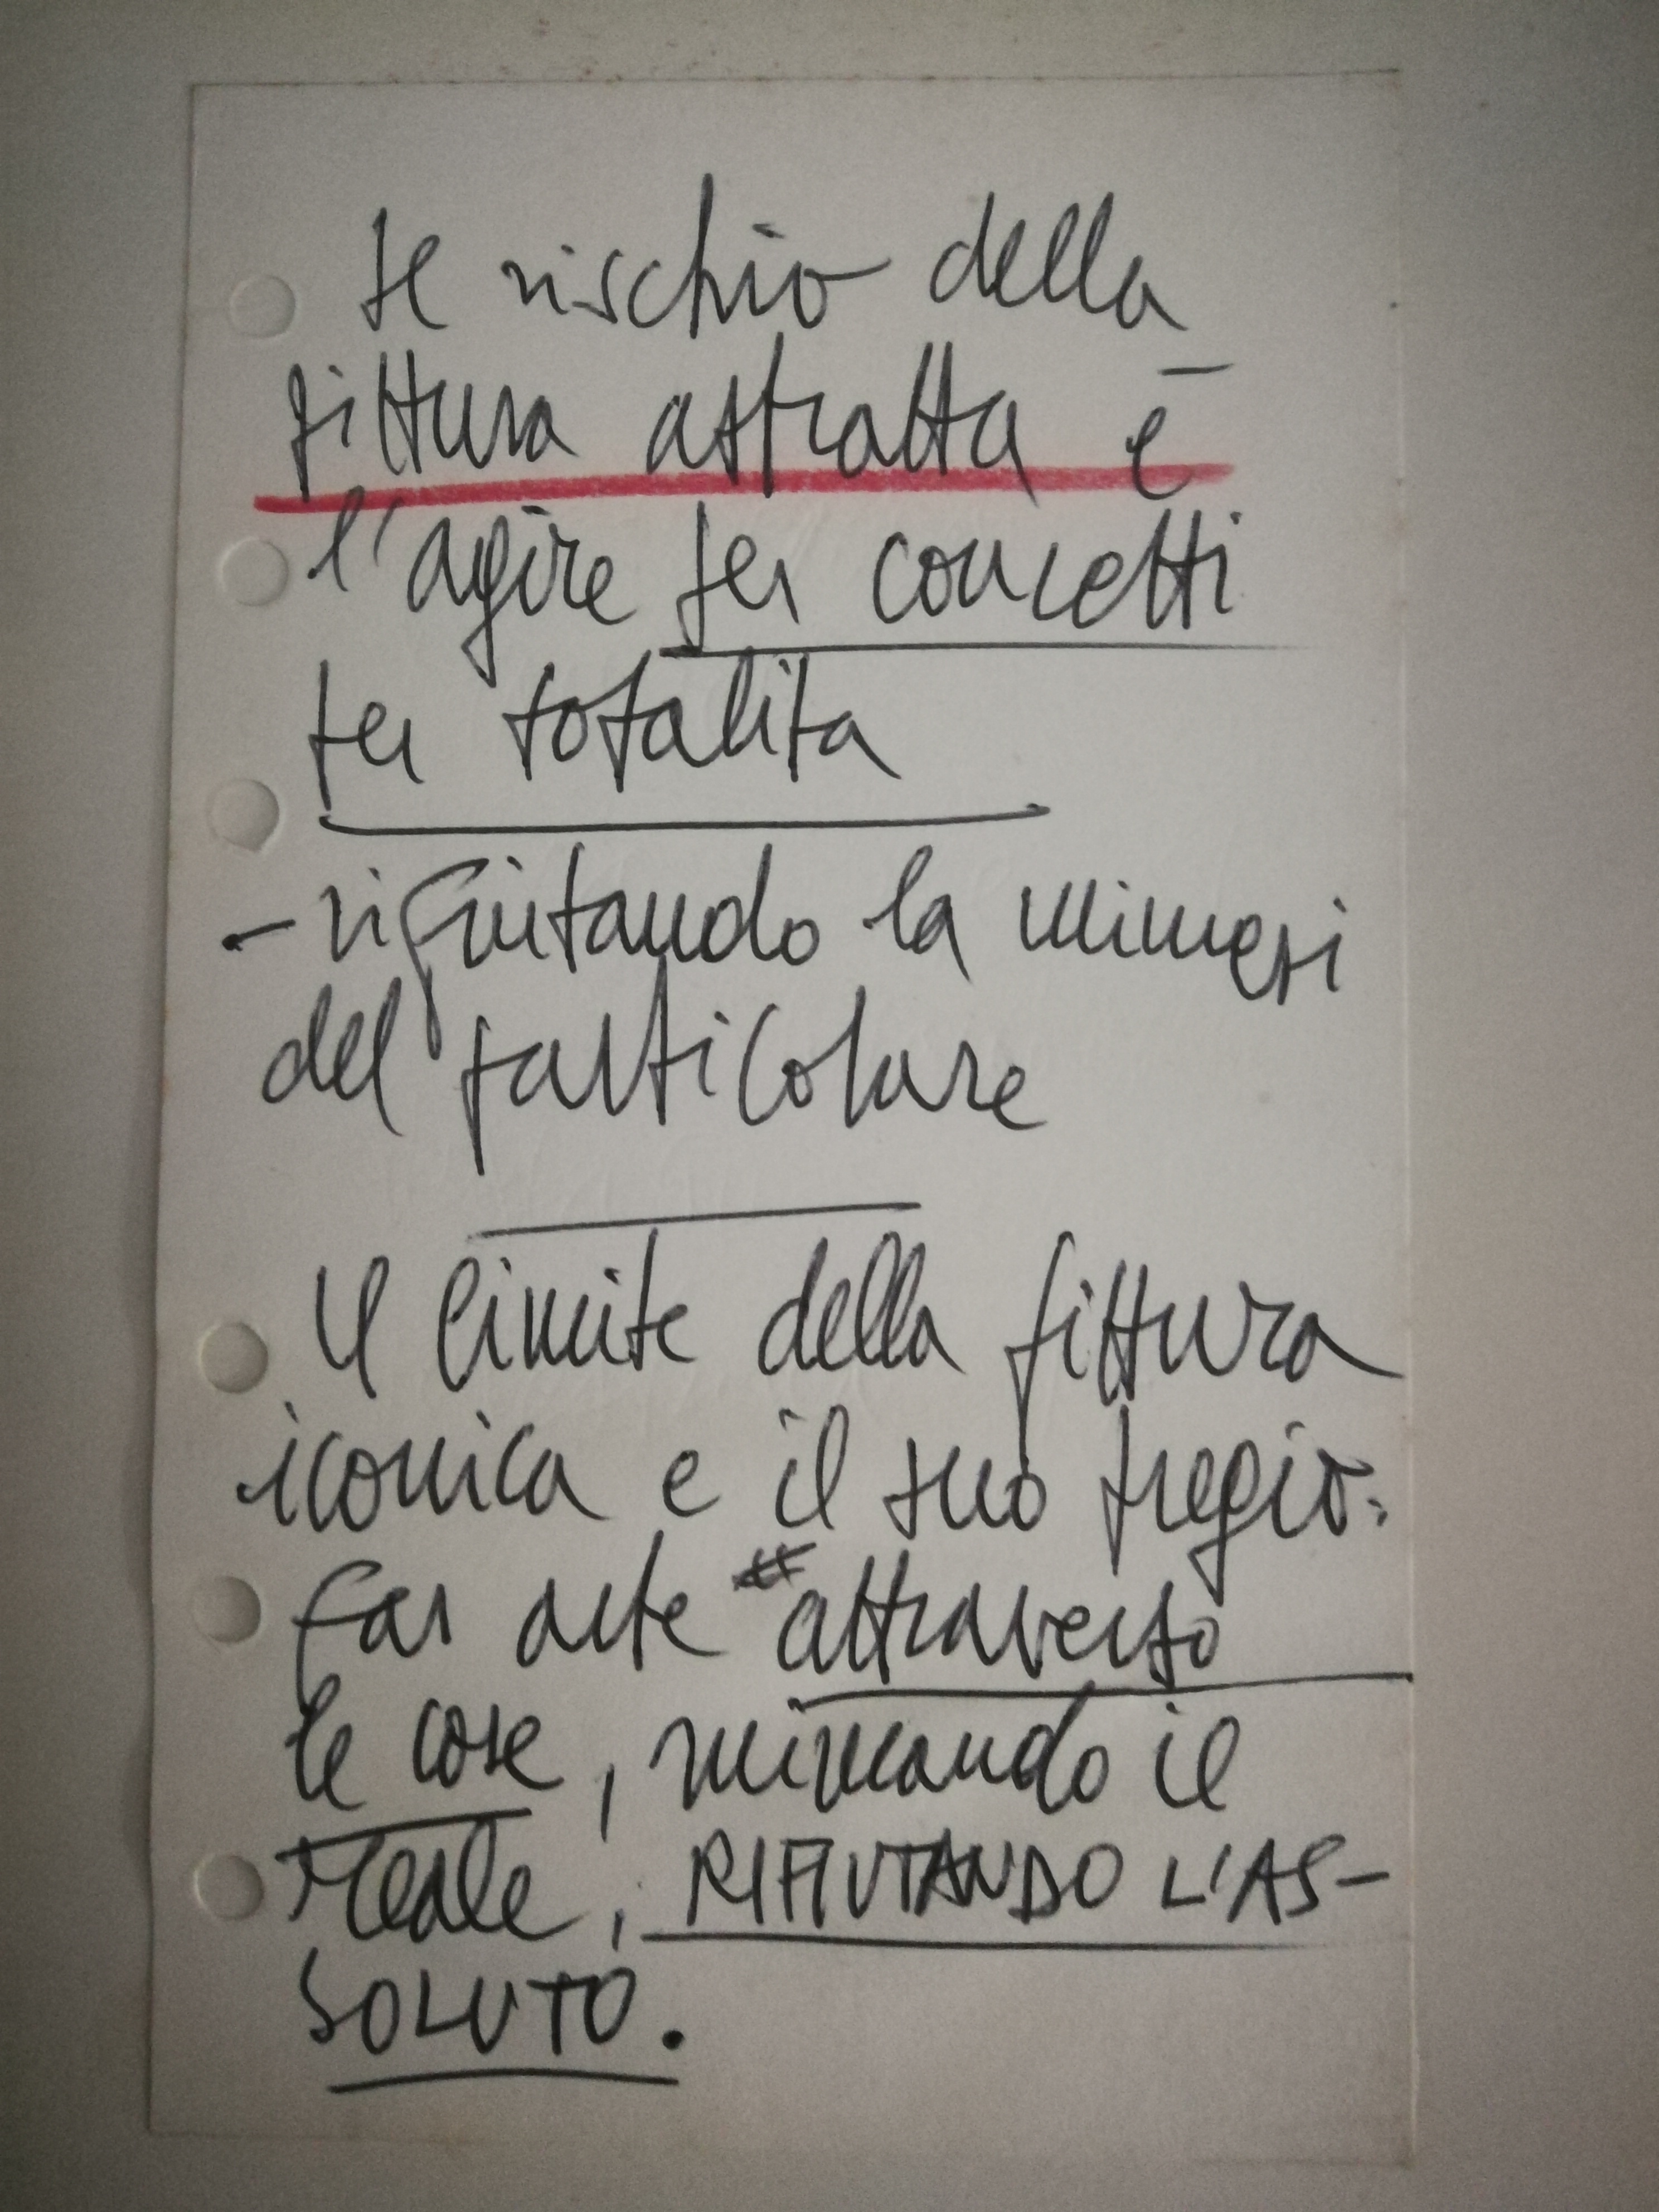 Il rischio della
pittura astratta è
l'agire per concetti
per totalità
- rifiutando la mimesi
del particolare
Il limite della pittura
iconica e il suo pregio:
far arte attraverso
le cose, mimando il
reale, RIFIUTANDO L'AS-
SOLUTO.